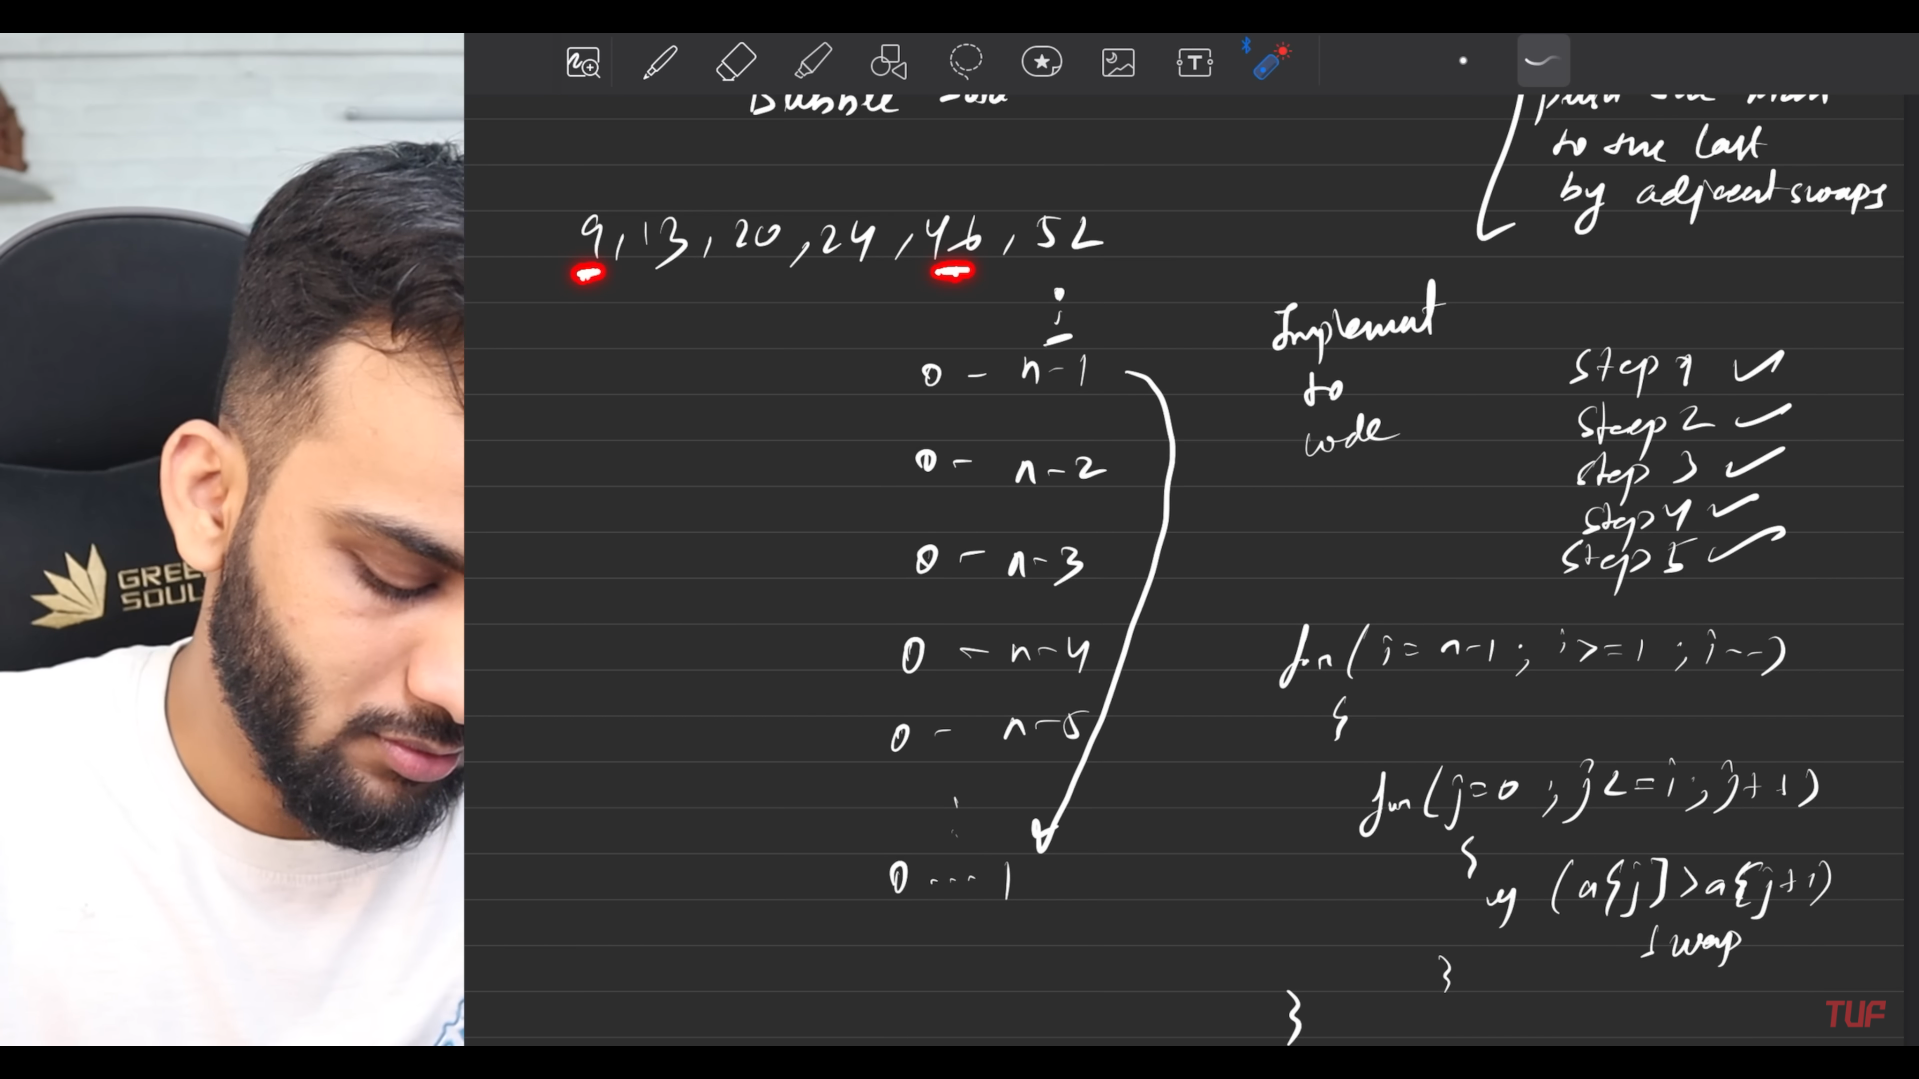 Bubble Sort
to the last
by adjacent swaps
9, 13, 20, 24, 46, 52
i
0 - n-1
0 - n-2
0 - n-3
0 - n-4
0 - n-5
0 ---- 1
Implement
to
code
Step 1 ✓
Steep 2 ✓
Step 3 ✓
Step 4 ✓
Step 5 ✓
for( i = n-1 ; i >= 1 ; i--)
{
for(j=0 ; j<=i ; j++1)
{
if (a[j] > a[j+1)
swap
}
}
GREE
SOUL
T
TUF